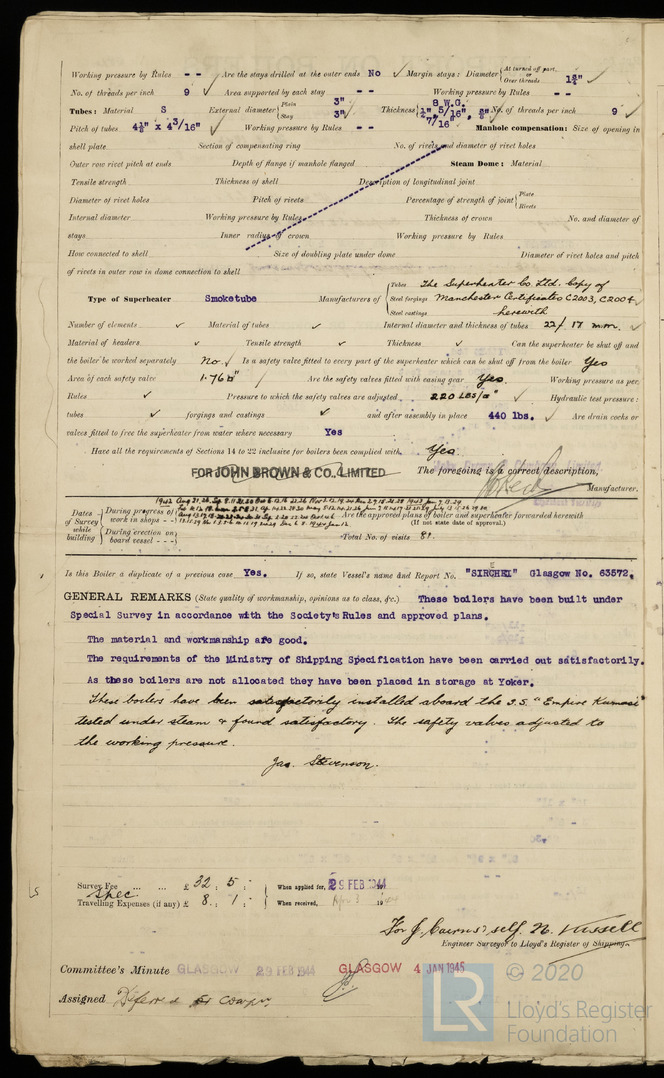 Working pressure by Rules -- Are the stays drilled at the outer ends No ✓ Margin stays: Diameter { At turned off part, or Over threads 1⅝" ✓
No. of threads per inch 9 ✓ Area supported by each stay -- Working pressure by Rules --
Tubes: Material S External diameter { Plain 3" Stay 3" Thickness { 8 W.G. ¼", 5/16", 7/16" No. of threads per inch 9 ✓
Pitch of tubes 4⅛" x 4 3/16" ✓ Working pressure by Rules -- Manhole compensation: Size of opening in
shell plate Section of compensating ring No. of rivets and diameter of rivet holes
Outer row rivet pitch at ends Depth of flange if manhole flanged Steam Dome: Material
Tensile strength Thickness of shell Description of longitudinal joint
Diameter of rivet holes Pitch of rivets Percentage of strength of joint { Plate Rivets
Internal diameter Working pressure by Rules Thickness of crown No. and diameter of
stays Inner radius of crown Working pressure by Rules
How connected to shell Size of doubling plate under dome Diameter of rivet holes and pitch
of rivets in outer row in dome connection to shell
Type of Superheater Smoketube Manufacturers of { Tubes The Superheater Co. Ltd. Copy of
Steel forgings Manchester Certificates C2003, C2004
Steel castings herewith
Number of elements ✓ Material of tubes ✓ Internal diameter and thickness of tubes 22/17 m.m. ✓
Material of headers ✓ Tensile strength ✓ Thickness ✓ Can the superheater be shut off and
the boiler be worked separately No. ✓ Is a safety valve fitted to every part of the superheater which can be shut off from the boiler Yes
Area of each safety valve 1.76□" Are the safety valves fitted with easing gear Yes. Working pressure as per
Rules ✓ Pressure to which the safety valves are adjusted 220 LBS/□" ✓ Hydraulic test pressure:
tubes ✓ forgings and castings ✓ and after assembly in place 440 lbs. ✓ Are drain cocks or
valves fitted to free the superheater from water where necessary Yes
Have all the requirements of Sections 14 to 22 inclusive for boilers been complied with Yes.
FOR JOHN BROWN & CO., LIMITED The foregoing is a correct description,
Manufacturer.
Dates of Survey while building { During progress of work in shops - - 1942
During erection on board vessel - - - Are the approved plans of boiler and superheater forwarded herewith
(If not state date of approval.)
Total No. of visits 81.
Is this Boiler a duplicate of a previous case Yes. If so, state Vessel's name and Report No. "SIRCHEI" Glasgow No. 63572.
GENERAL REMARKS (State quality of workmanship, opinions as to class, &c.) These boilers have been built under
Special Survey in accordance with the Society's Rules and approved plans.
The material and workmanship are good.
The requirements of the Ministry of Shipping Specification have been carried out satisfactorily.
As these boilers are not allocated they have been placed in storage at Yoker.
These boilers have been satisfactorily installed aboard the S.S. "Empire Kumasi"
tested under steam & found satisfactory. The safety valves adjusted to
the working pressure.
Jas. Stevenson.
Survey Fee ... ... £ 32 : 5 : When applied for, 29 FEB 1944
Spec
Travelling Expenses (if any) £ 8 : 1 : When received, 19
For J. Cairns, self, N. Russell
Engineer Surveyor to Lloyd's Register of Shipping.
Committee's Minute GLASGOW 29 FEB 1944 GLASGOW 4 JAN 1945
Assigned Deferred for
© 2020
LR Lloyd's Register
Foundation